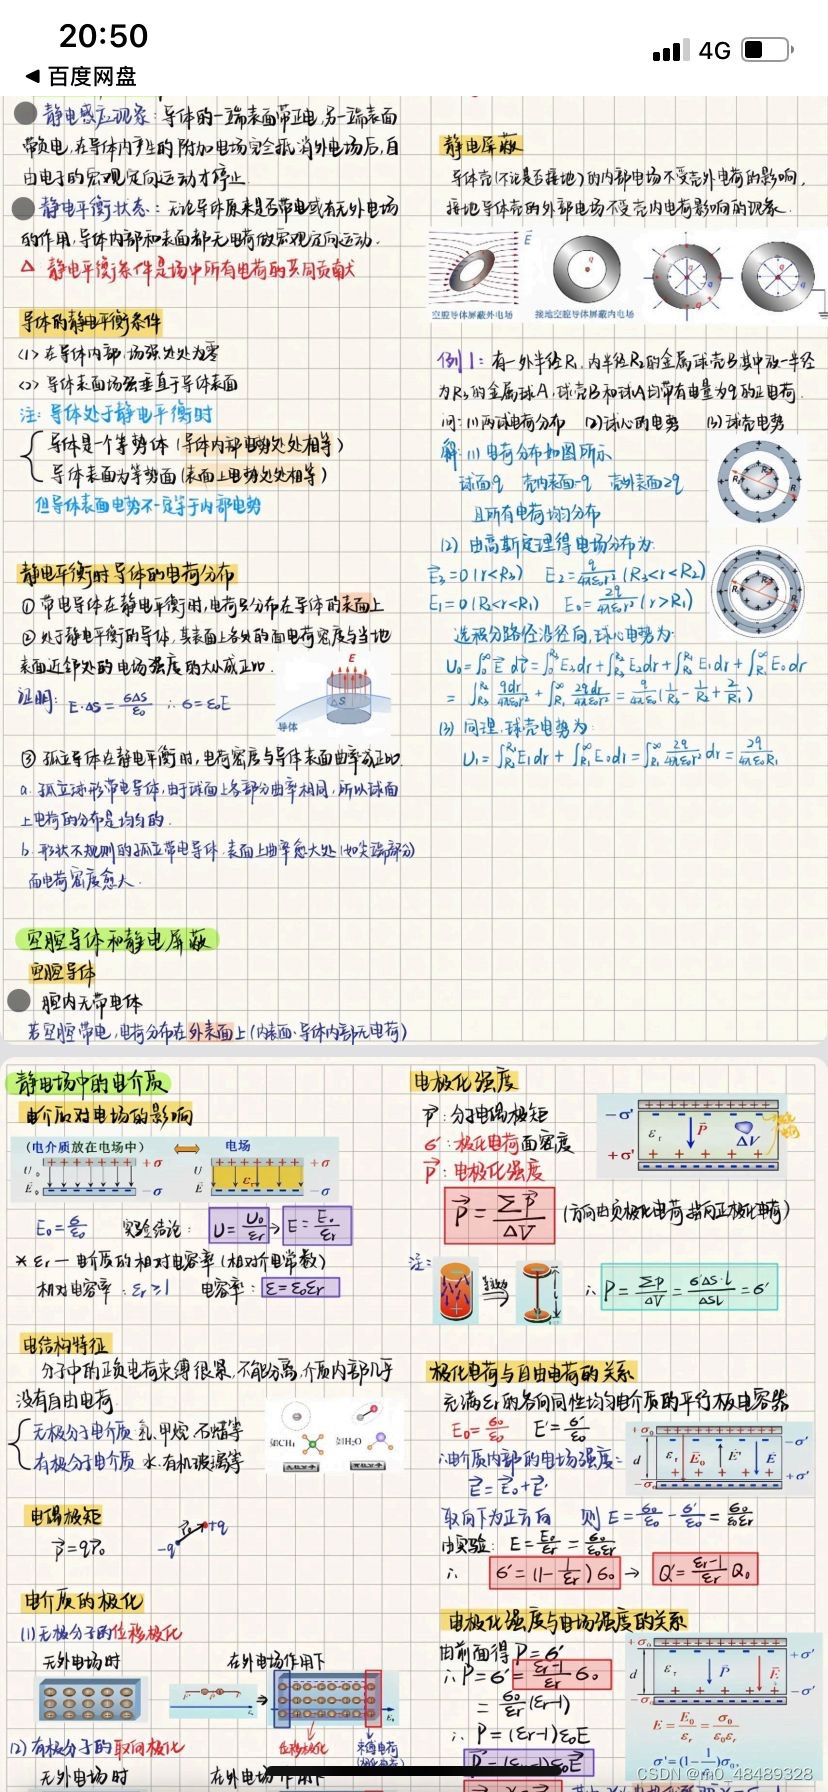 20:50
4G
◀ 百度网盘
静电感应现象：导体的一端表面带正电,另一端表面
带负电,在导体内产生的附加电场完全抵消外电场后,自
由电子的宏观定向运动才停止.
静电平衡状态：无论导体原来是否带电或有无外电场
的作用,导体内部和表面都无电荷做宏观定向运动.
△ 静电平衡条件是场中所有电荷的共同贡献
导体的静电平衡条件
(1) 在导体内部,场强处处为零
(2) 导体表面场强垂直于导体表面
注：导体处于静电平衡时
导体是个等势体(导体内部电势处处相等)
导体表面为等势面(表面上电势处处相等)
但导体表面电势不一定等于内部电势
静电平衡时导体的电荷分布
① 带电导体在静电平衡时,电荷只分布在导体的表面上
② 处于静电平衡的导体,其表面上各处的面电荷密度与当地
表面近邻处的电场强度的大小成正比.
证明： E·ΔS = σΔS/ε₀ ∴ σ=ε₀E
E
ΔS
导体
③ 孤立导体在静电平衡时,电荷密度与导体表面曲率成正比
a. 孤立球形带电导体,由于球面上各部分曲率相同,所以球面
上电荷的分布是均匀的.
b. 形状不规则的孤立带电导体,表面上曲率愈大处(如尖端部分)
面电荷密度愈大.
空腔导体和静电屏蔽
空腔导体
腔内无带电体
若空腔带电,电荷分布在外表面上(内表面、导体内部无电荷)
静电屏蔽
导体壳(不论是否接地)的内部电场不受壳外电荷的影响,
接地导体壳的外部电场不受壳内电荷影响的现象.
空腔导体屏蔽外电场
接地空腔导体屏蔽内电场
例1：有一外半径R₁,内半径R₂的金属球壳B,其中放一半径
为R₃的金属球A,球壳B和球A均带有电量为q的正电荷.
问：(1)两球电荷分布 (2)球心的电势 (3)球壳电势
解：(1) 电荷分布如图所示
球面q 壳内表面-q 壳外表面2q
且所有电荷均匀分布
(2) 由高斯定理得电场分布为：
E₃=0 (r<R₃) E₂=q/4πε₀r² (R₃<r<R₂)
E₁=0 (R₂<r<R₁) E₀=2q/4πε₀r² (r>R₁)
选积分路径沿径向,球心电势为：
U₀=∫₀^∞ E⃗ dr⃗ = ∫₀^R₃ E₃dr + ∫_R₃^R₂ E₂dr + ∫_R₂^R₁ E₁dr + ∫_R₁^∞ E₀dr
= ∫_R₃^R₂ qdr/4πε₀r² + ∫_R₁^∞ 2qdr/4πε₀r² = q/4πε₀ (1/R₃ - 1/R₂ + 2/R₁)
(3) 同理,球壳电势为：
U₁=∫_R₂^R₁ E₁dr + ∫_R₁^∞ E₀dr = ∫_R₁^∞ 2q/4πε₀r² dr = 2q/4πε₀R₁
静电场中的电介质
电介质对电场的影响
(电介质放在电场中) 电场
E₀=σ/ε₀ 实验结论： U=U₀/εr → E=E₀/εr
* εr — 电介质的相对电容率(相对介电常数)
相对电容率：εr≥1 电容率：ε=ε₀εr
电结构特征
分子中的正负电荷束缚很紧,不能分离,介质内部几乎
没有自由电荷
无极分子电介质 氢,甲烷,石蜡等
有极分子电介质 水,有机玻璃等
如CH₄
如H₂O
无极分子
有极分子
电偶极矩
p⃗=qr⃗₀
-q +q
电介质的极化
(1)无极分子的位移极化
无外电场时 在外电场作用下
位移极化
束缚电荷
(2)有极分子的取向极化
无外电场时 在外电场作用下
电极化强度
p⃗：分子电偶极矩
σ'：极化电荷面密度
P⃗：电极化强度
-σ' εr P⃗ ΔV +σ'
P⃗ = Σp⃗/ΔV (方向由负极化电荷指向正极化电荷)
注：
∴ P = Σp/ΔV = σ'ΔS·l/ΔSl = σ'
极化电荷与自由电荷的关系
充满εr的各向同性均匀电介质的平行板电容器
E₀=σ₀/ε₀ E'=σ'/ε₀
∴电介质内部的电场强度：
E⃗=E⃗₀+E⃗'
取向下为正方向 则 E=σ₀/ε₀ - σ'/ε₀ = σ₀/ε₀εr
由实验：E=E₀/εr=σ₀/ε₀εr
∴ σ'=(1-1/εr)σ₀ → Q'=εr-1/εr Q₀
电极化强度与电场强度的关系
由前面得 P=σ'
∴ P=σ'=εr-1/εr σ₀
= σ₀/εr (εr-1)
∴ P=(εr-1)ε₀E
P⃗=(εr-1)ε₀E⃗
E=E₀/εr=σ₀/ε₀εr
σ'=(1-1/εr)σ₀
CSDN @m0_48489328